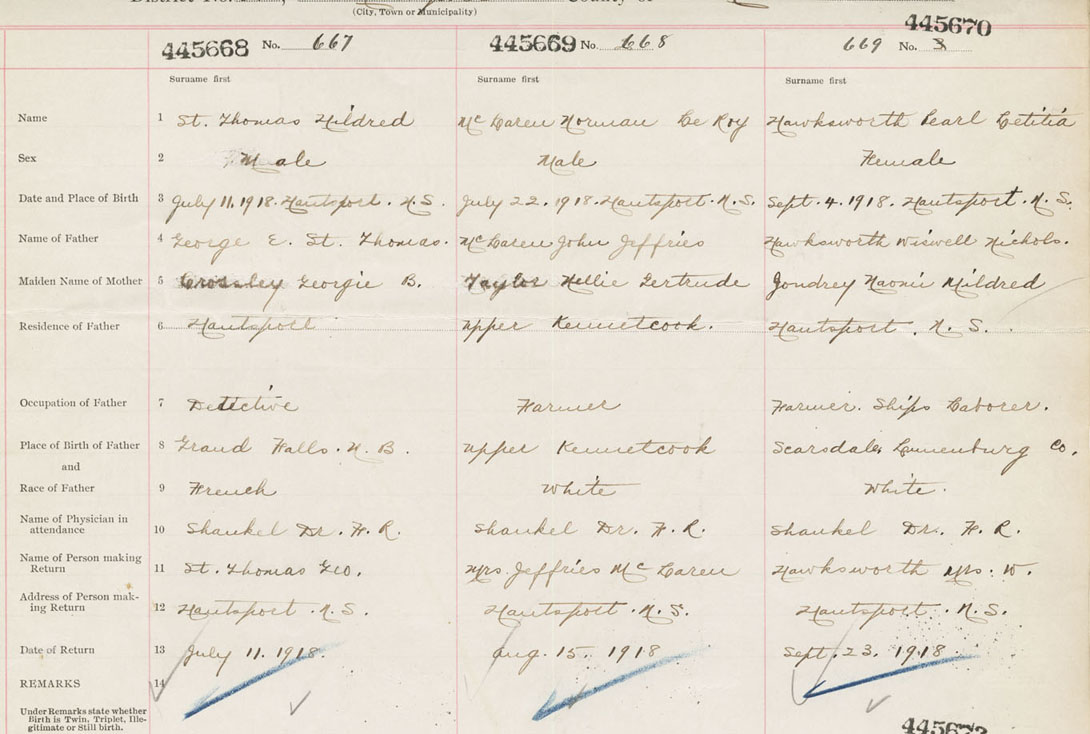 District No. County of
(City, Town or Municipality)
445668 No. 667 445669 No. 668 669 No. 3 445670
Surname first Surname first Surname first
Name 1 St. Thomas Mildred McLaren Norman Le Roy Hawksworth Pearl Letitia
Sex 2 Male Male Female
Date and Place of Birth 3 July 11, 1918. Hantsport. N.S. July 22, 1918. Hantsport. N.S. Sept. 4. 1918. Hantsport. N.S.
Name of Father 4 George E. St. Thomas. McLaren John Jeffries Hawksworth Wiswell Nichols.
Maiden Name of Mother 5 Crossley Georgie B. Taylor Nellie Gertrude Jondrey Naomi Mildred
Residence of Father 6 Hantsport Upper Kennetcook. Hantsport. N.S.
Occupation of Father 7 Detective Farmer Farmer. Ships Laborer.
Place of Birth of Father 8 Grand Falls. N.B. Upper Kennetcook Scarsdale Lunenburg Co.
and
Race of Father 9 French White White.
Name of Physician in
attendance 10 Shankel Dr. F. R. Shankel Dr. F. R. Shankel Dr. F. R.
Name of Person making
Return 11 St. Thomas Geo. Mrs. Jeffries McLaren Hawksworth Mrs. W.
Address of Person mak-
ing Return 12 Hantsport. N.S. Hantsport. N.S. Hantsport. N.S.
Date of Return 13 July 11. 1918. Aug. 15. 1918 Sept. 23. 1918
REMARKS 14
Under Remarks state whether
Birth is Twin, Triplet, Ille-
gitimate or Still birth.